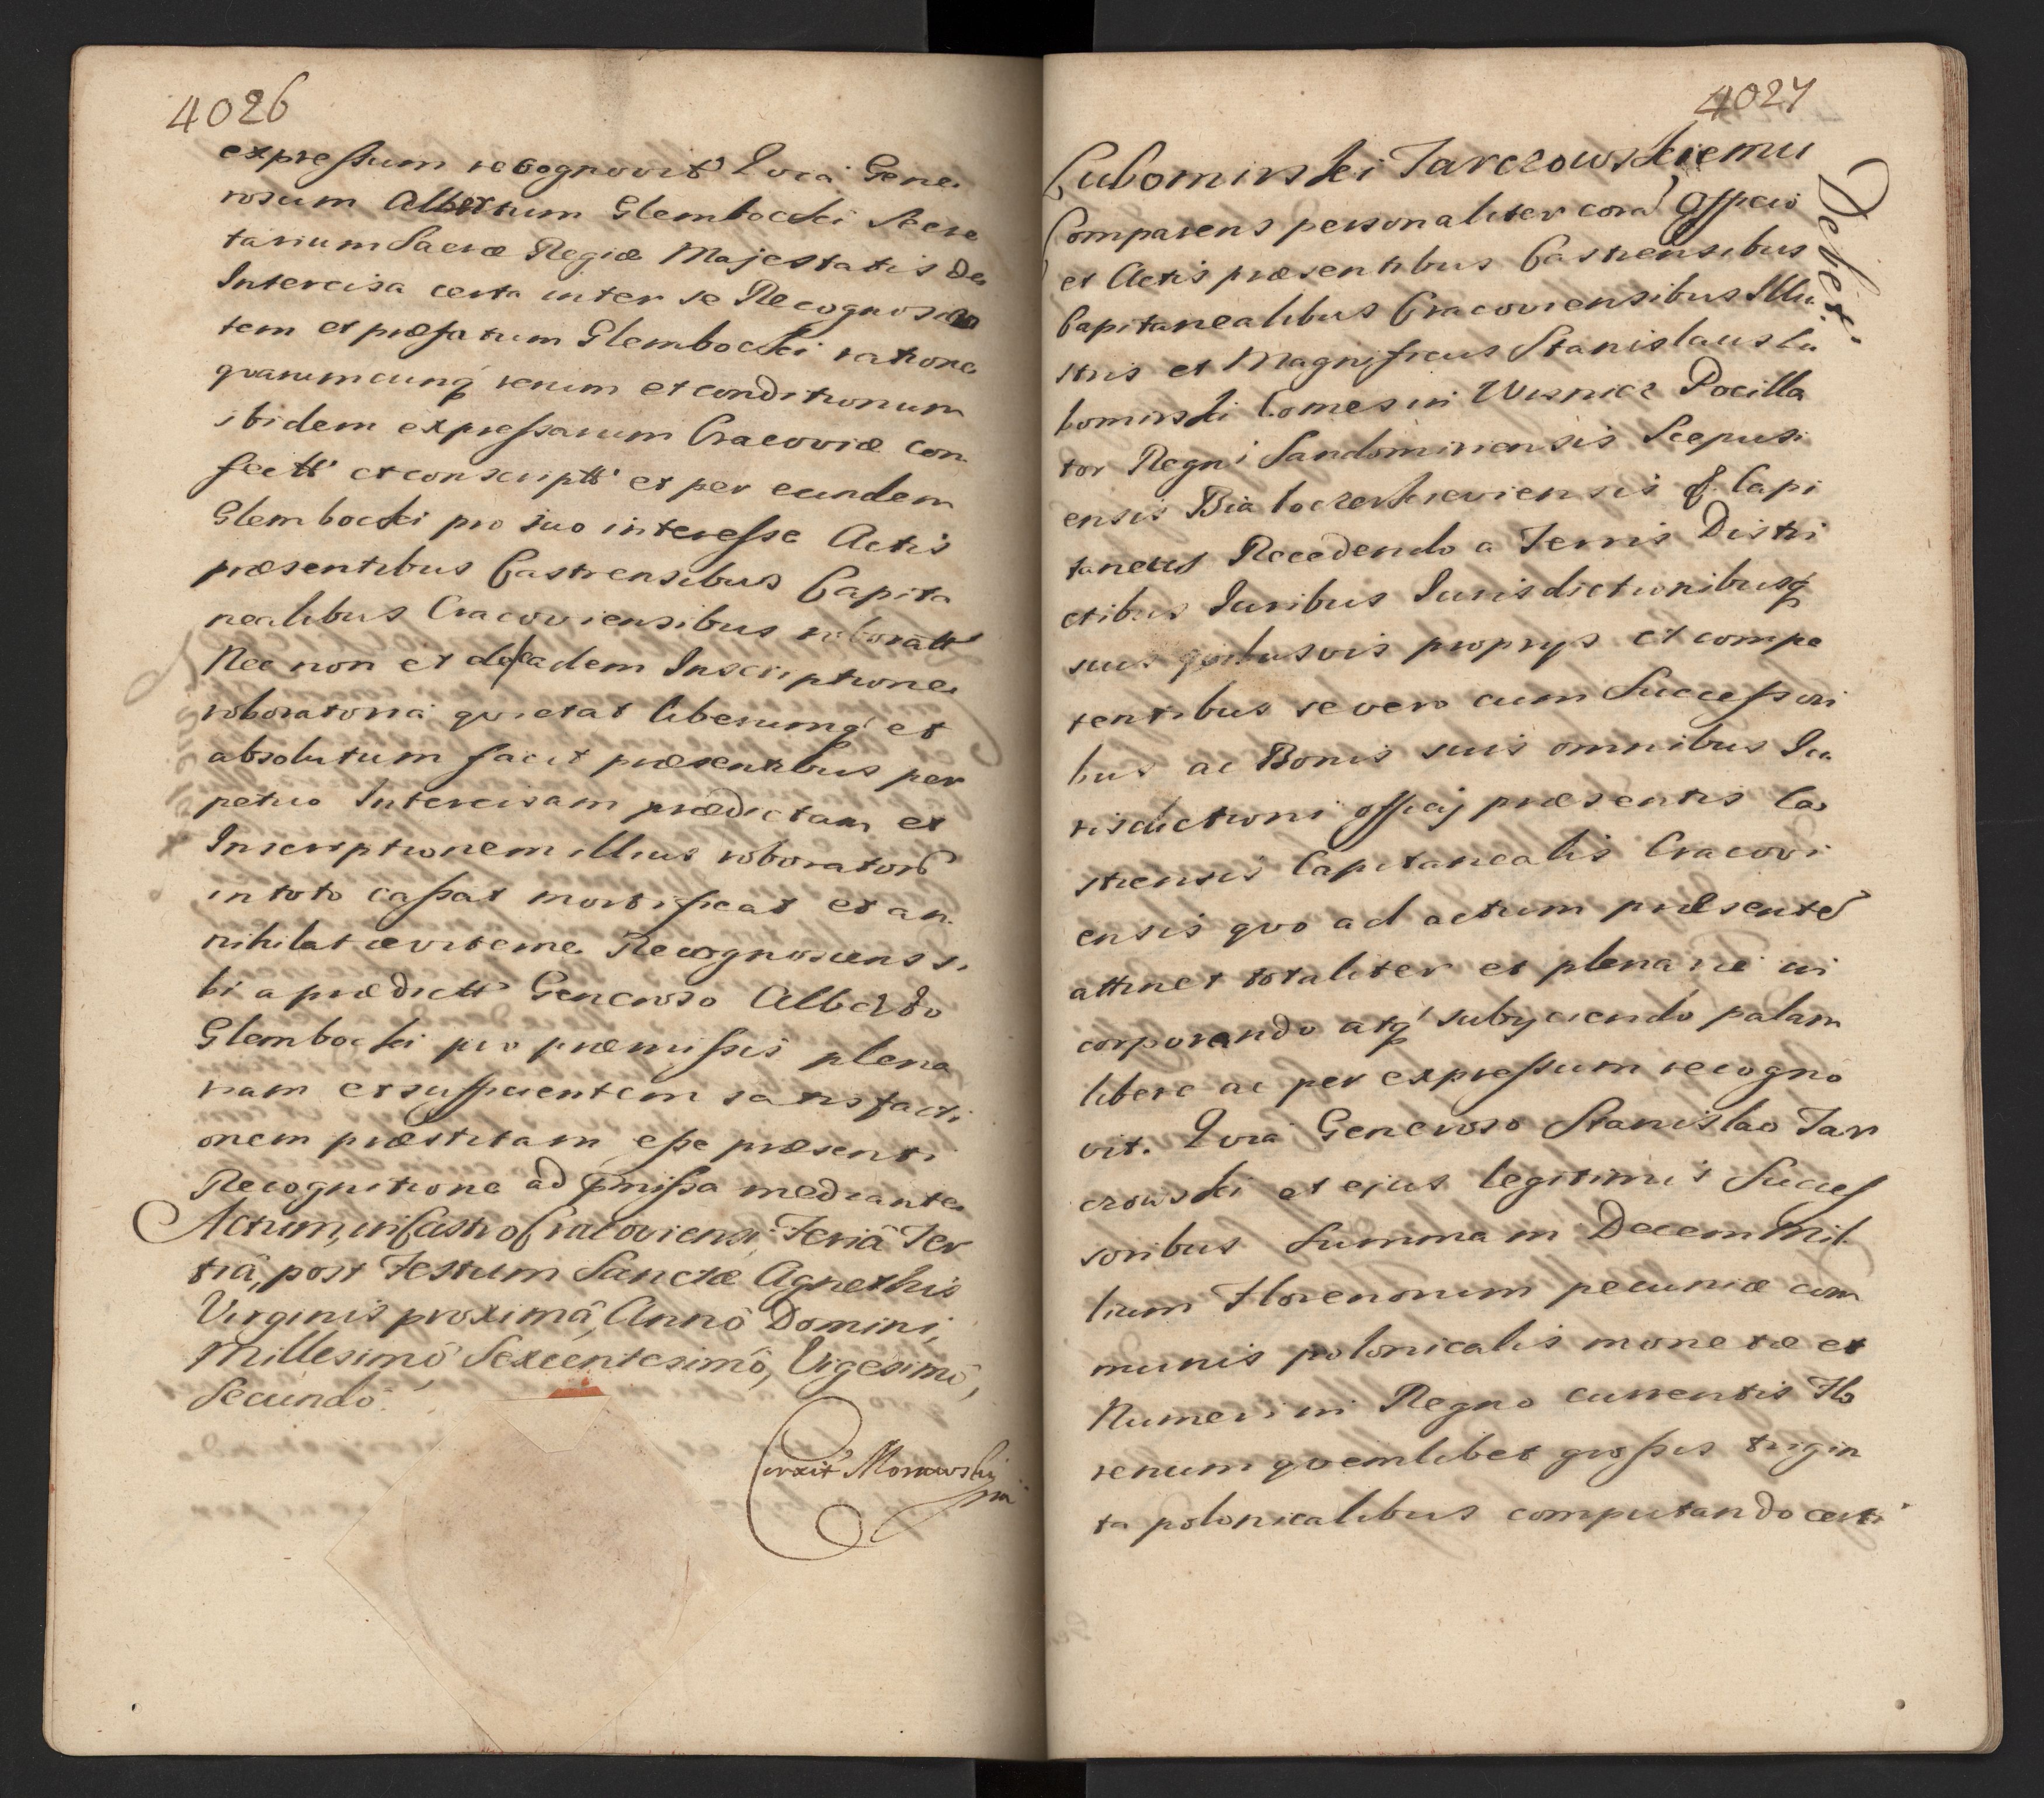 4026
expressum recognovit Quia Gene
rosum Albertum Glembocki Secre
tarium Sacræ Regiæ Majestatis de
Intercisa certa inter se Recognoscen
tem et præfatum Glembocki ratione
quarumcunq rerum et conditionum
ibidem expressarum Cracoviæ con
fectt et conscriptt et per eundem
Glembocki pro suo interesse Actis
præsentibus Castrensibus Capita
nealibus Cracoviensibus roboratt
Nec non et de eadem Inscriptione
roboratoria quietat liberumq et
absolutum facit præsentibus per
petuo Intercisam prædictam et
Inscriptionem illius roborator
in toto cassat mortificat et an
nihilat æviterne Recognoscens si
bi a prædictt Generoso Alberto
Glembocki pro præmissis plena
riam et sufficientem satisfacti
onem præstitam esse præsenti
Recognitione ad pmissa mediante
Actum, in Castro Cracoviensi, Feriâ Ter
tiâ, post Festum Sanctæ Agnethis
Virginis proximâ, Annô Domini,
Millesimô, Sexcentesimô, Vigesimô,
Secundô.
4027
Lubomirski Tarczowskiemu
Debet.
Comparens personaliter cora Officio
et Actis præsentibus Castrensibus
Capitanealibus Cracoviensibus Illu
stris et Magnificus Stanislaus Lu
bomirski Comes in Wisnicz Pocilla
tor Regni Sandomiriensis Scepusi
ensis Bialocerkieviensis &. Capi
taneus Recedendo a Terris Distri
ctibus Iuribus Iurisdictionibusq
suis quibusvis proprys et compe
tentibus se vero cum Successori
bus ac Bonis suis omnibus Iu
risdictioni officij præsentis Ca
strensis Capitanealis Cracovi
ensis quo ad actum præsente
attinet totaliter et plenarie in
corporando atq subyciendo palam
libere ac per expressum recogno
vit. Quia Generoso Stanislao Tar
czowski et ejus legitimis Succes
soribus Summam Decem Mil
lium Florenorum pecuniæ com
munis polonicalis monetæ et
Numeri in Regno currentis Flo
renum quemlibet grossis trigin
ta polonicalibus computando certi